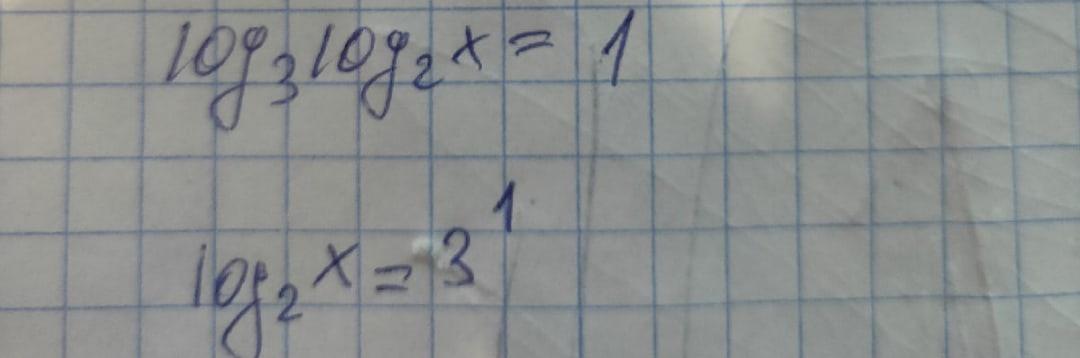 log₃log₂x = 1
log₂x = 3¹